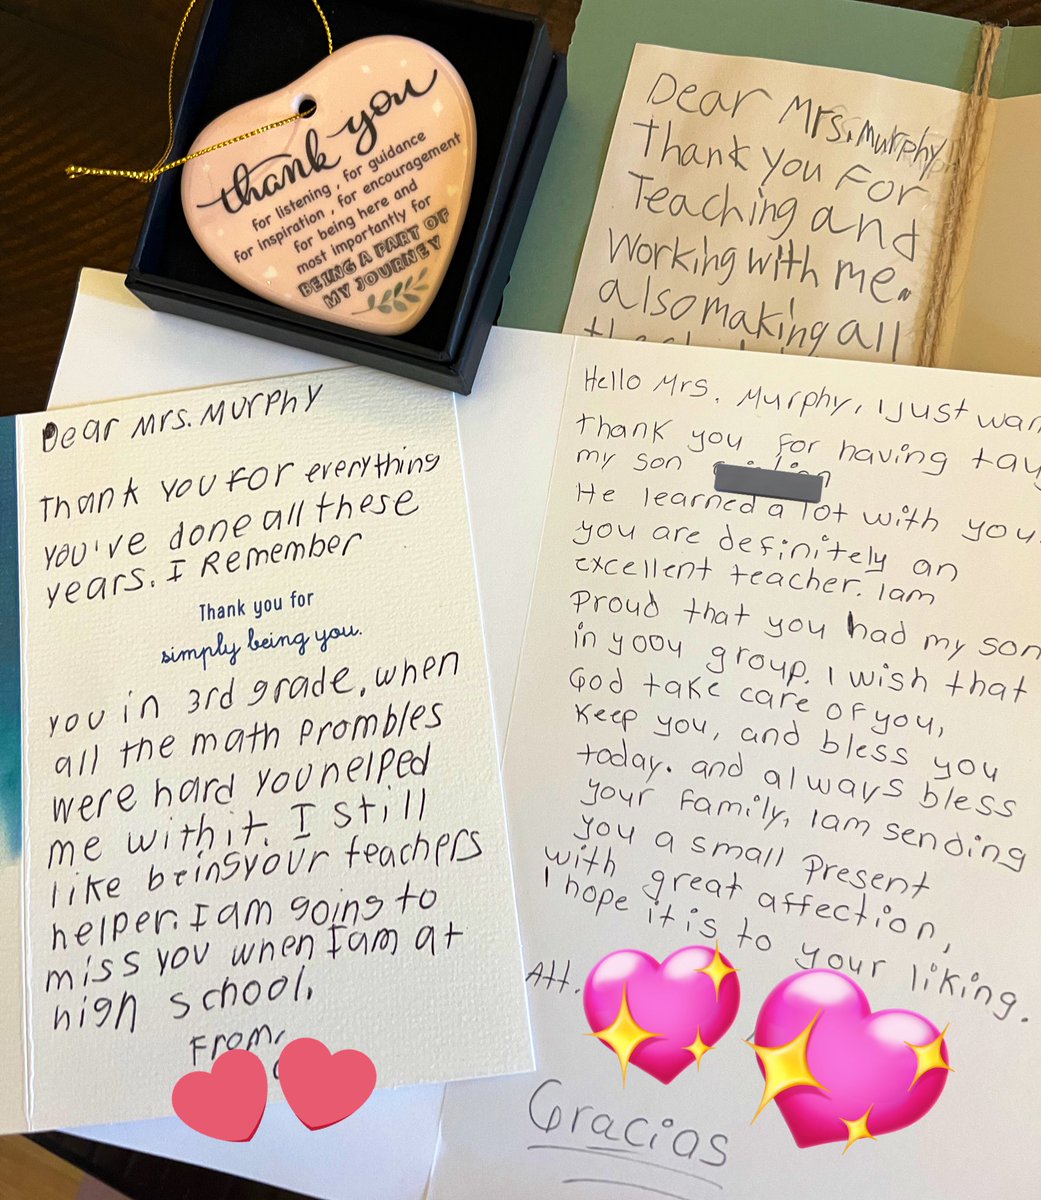 thank you
for listening, for guidance
for inspiration, for encouragement
for being here and
most importantly for
BEING A PART OF
MY JOURNEY
Dear Mrs. Murphy
Thank you For
Teaching and
Working with me.
also making all
Dear Mrs. Murphy
Thank you for everything
you've done all these
years. I Remember
Thank you for
simply being you.
you in 3rd grade, when
all the math prombles
were hard you helped
me with it. I still
like being your teachers
helper. I am going to
miss you when I am at
high school.
From,
Hello Mrs. Murphy, I just
thank you for having
my son
He learned a lot with you.
you are definitely an
excellent teacher. I am
Proud that you had my son
in yoou group. I wish that
God take care of you,
keep you, and bless you
today. and always bless
your family, I am sending
you a small present
with great affection,
I hope it is to your liking.
Att.
Gracias